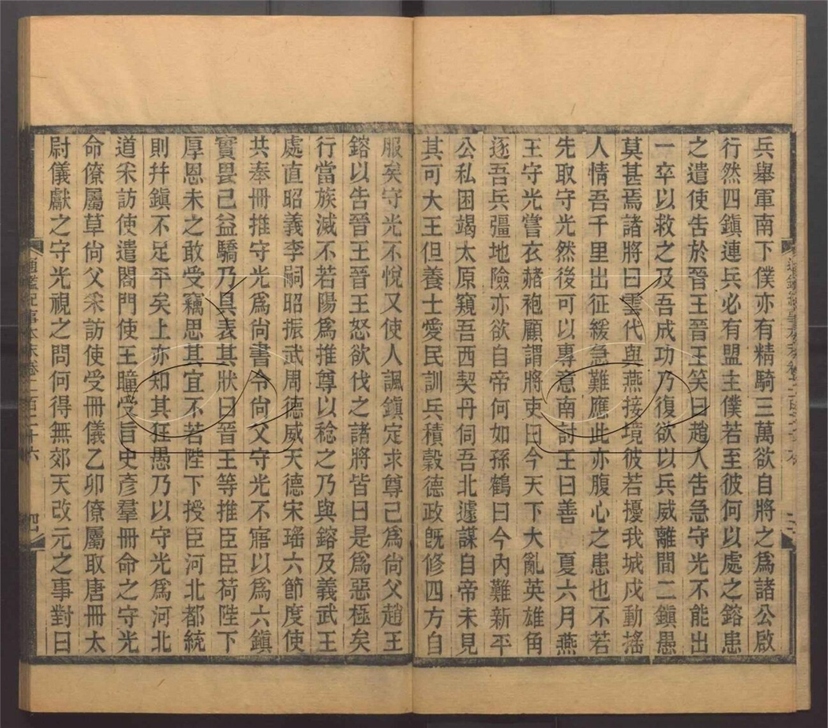 兵舉軍南下僕亦有精騎三萬欲自將之爲諸公啟
行然四鎮連兵必有盟主僕若至彼何以處之鎔患
之遣使告於晉王晉王笑曰趙人告急守光不能出
一卒以救之及吾成功乃復欲以兵威離間二鎮愚
莫甚焉諸將曰雲代與燕接境彼若擾我城戍動搖
人情吾千里出征緩急難應此亦腹心之患也不若
先取守光然後可以專意南討王曰善　夏六月燕
王守光嘗衣赭袍顧謂將吏曰今天下大亂英雄角
逐吾兵彊地險亦欲自帝何如孫鶴曰今內難新平
公私困竭太原窺吾西契丹伺吾北遽謀自帝未見
其可大王但養士愛民訓兵積穀德政旣修四方自
服矣守光不悅又使人諷鎮定求尊己爲尙父趙王
鎔以告晉王晉王怒欲伐之諸將皆曰是爲惡極矣
行當族滅不若陽爲推尊以稔之乃與鎔及義武王
處直昭義李嗣昭振武周德威天德宋瑤六節度使
共奉冊推守光爲尙書令尙父守光不寤以爲六鎮
實畏己益驕乃具表其狀曰晉王等推臣臣荷陛下
厚恩未之敢受竊思其宜不若陛下授臣河北都統
則幷鎮不足平矣上亦知其狂愚乃以守光爲河北
道采訪使遣閤門使王瞳受旨史彥羣冊命之守光
命僚屬草尙父采訪使受冊儀乙卯僚屬取唐冊太
尉儀獻之守光視之問何得無郊天改元之事對曰